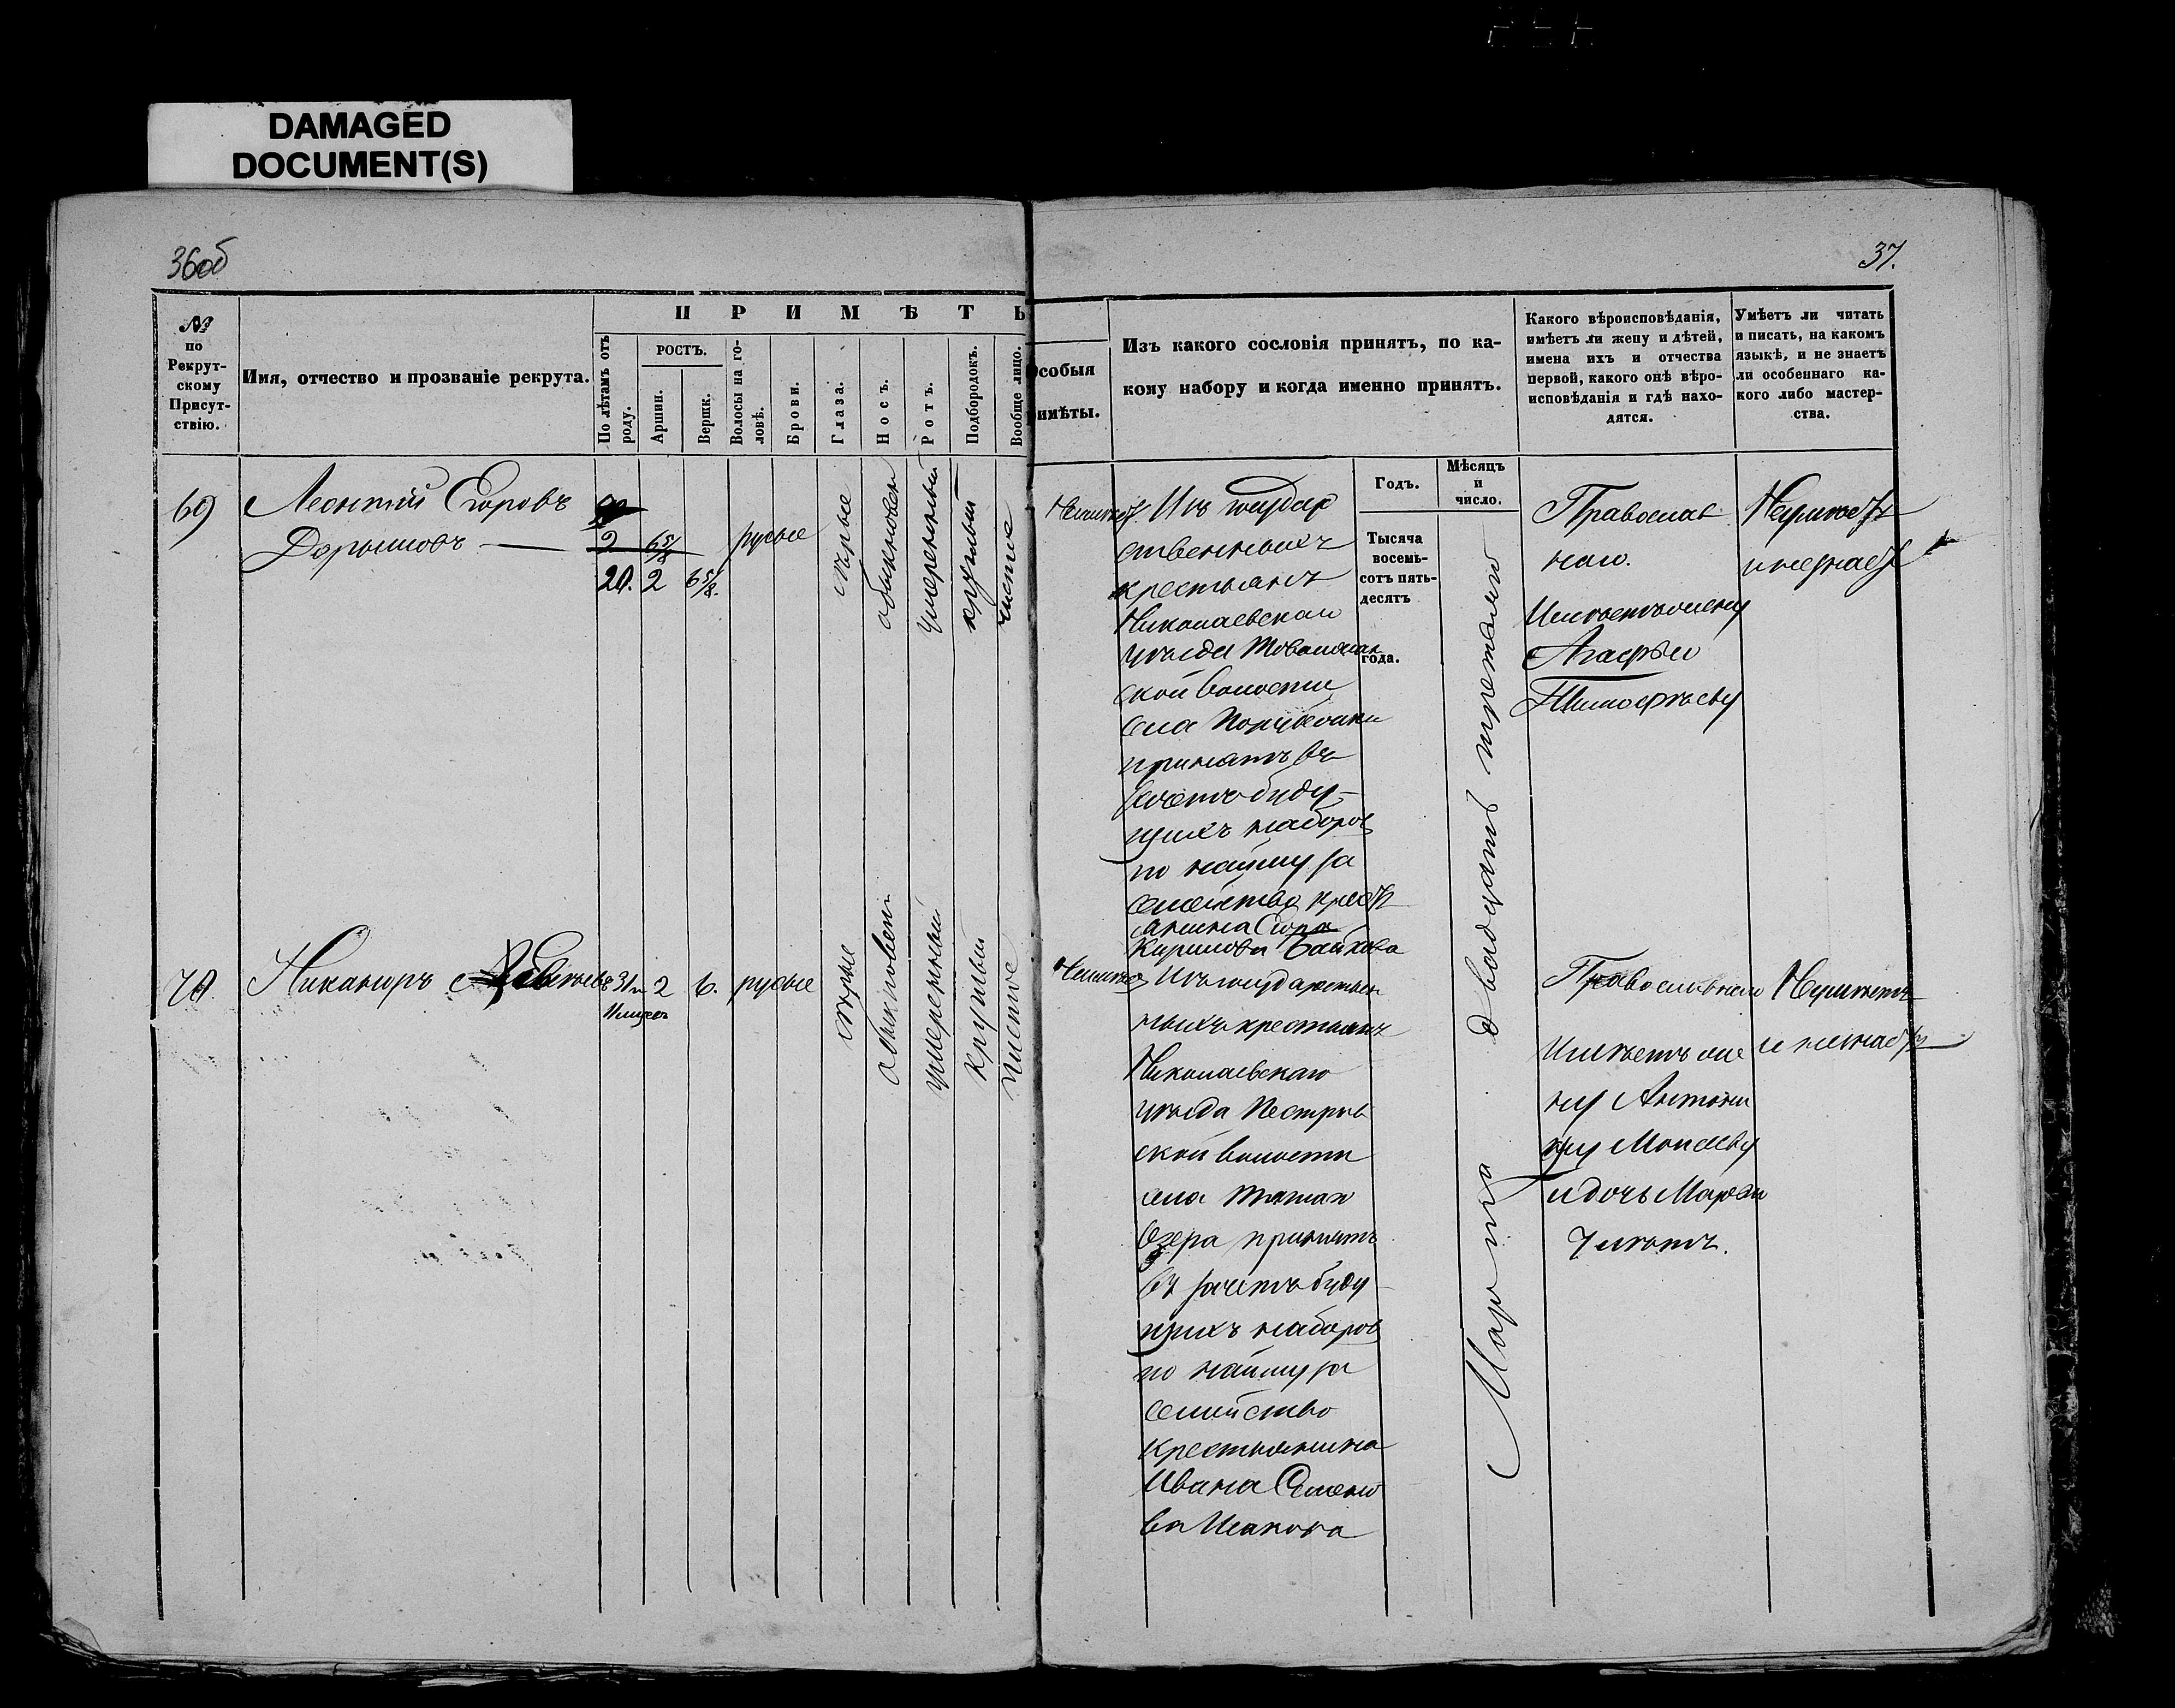 DAMAGED
DOCUMENT(S)
36об
37.
№ по Рекрутскому Присутствію.
Имя, отчество и прозваніе рекрута.
ПРИМѢТЫ
По лѣтамъ отъ роду.
РОСТЪ.
Аршин.
Вершк.
Волосы на головѣ.
Брови.
Глаза.
Носъ.
Ротъ.
Подбородокъ.
Вообще лицо.
Особыя
имѣты.
Изъ какого сословія принятъ, по ка-
кому набору и когда именно принятъ.
Какого вѣроисповѣданія,
имѣетъ ли жену и дѣтей,
имена ихъ и отчества
первой, какого онѣ вѣро-
исповѣданія и гдѣ нахо-
дятся.
Умѣетъ ли читать
и писать, на какомъ
языкѣ, и не знаетъ
ли особеннаго ка-
кого либо мастер-
ства.
Годъ.
Мѣсяцъ
и
число.
Тысяча
восемь-
сотъ пять-
десятъ
года.
69
Леонтій Егоровъ
2 6 5/8
20. 2 6 5/8.
русые
сѣрые
обыкновен
умеренный
круглый
чистое
Изъ государ
ственныхъ
крестьянъ
Николаевскаго
уѣзда
ской волости
села Порубежки
принятъ въ
зачетъ буду-
щихъ наборовъ
по найму за
семейство крест
янина Егора
Кирилова Байкова
Марта двадцать третьяго
Православ
наго.
Имѣетъ жену
Агафью
Тимофѣеву
Неумѣетъ
и незнаетъ
70.
Никаноръ
31 2 6. русые
сѣрые
обыкновен
умеренный
круглый
чистое
Изъ государствен
ныхъ крестьянъ
Николаевскаго
уѣзда Пестрав
ской волости
села Тяглаго
Озера принятъ
въ зачетъ буду-
щихъ наборовъ
по найму за
семейство
крестьянина
Ивана Семено
ва Исакова
Православнаго
Имѣетъ же
ну Антони
ну Моисеву
и дочь Марью
7 лѣтъ.
Неумѣетъ
и незнаетъ